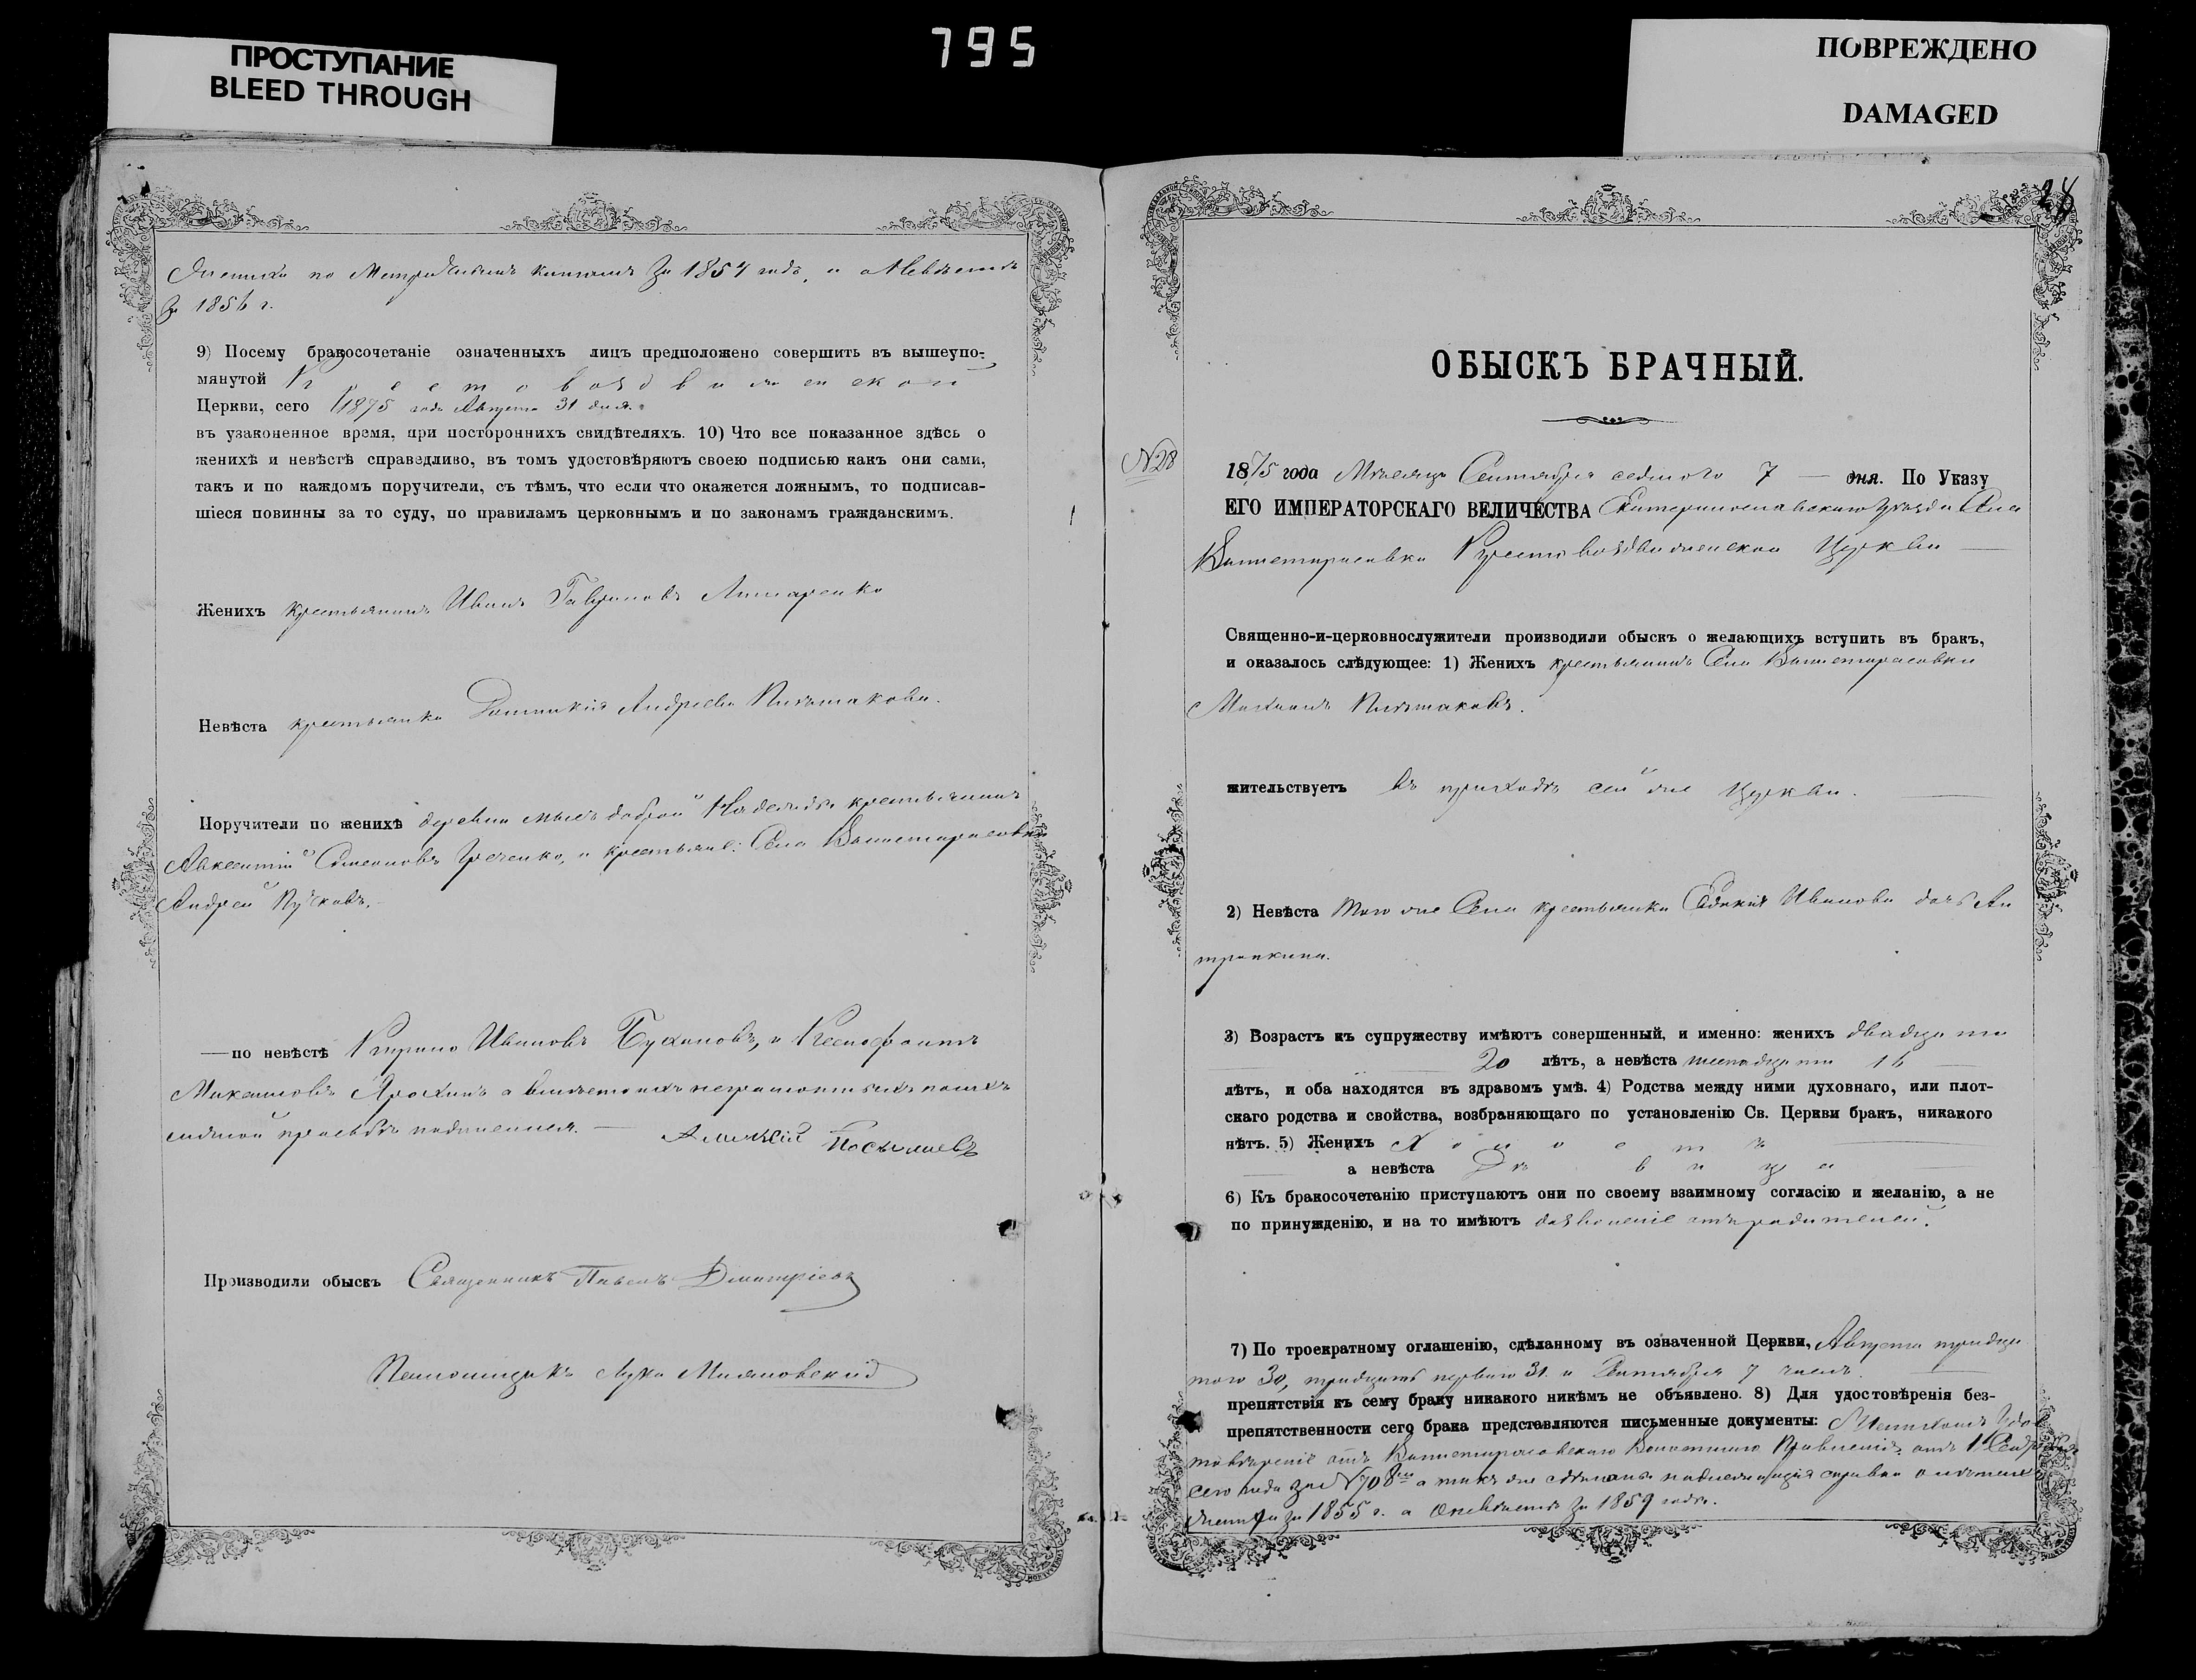 ПРОСТУПАНИЕ
BLEED THROUGH
795
ПОВРЕЖДЕНО
DAMAGED
по Метрическимъ книгамъ за 1854 годъ, и о Невѣстѣ
за 1856 г.
9) Посему бракосочетаніе означенныхъ лицъ предположено совершить въ вышеупо-
мянутой Крестовоздвиженской
Церкви, сего 1875 года Августа 31 дня.
въ узаконенное время, при постороннихъ свидѣтеляхъ. 10) Что все показанное здѣсь о
женихѣ и невѣстѣ справедливо, въ томъ удостовѣряютъ своею подписью какъ они сами,
такъ и по каждомъ поручители, съ тѣмъ, что если что окажется ложнымъ, то подписав-
шіеся повинны за то суду, по правиламъ церковнымъ и по законамъ гражданскимъ.
Женихъ крестьянинъ Иванъ Гавриловъ
Невѣста крестьянка Домникія Андреева
Поручители по женихѣ деревни Надежды крестьянинъ
Авксентій Симеоновъ и крестьяне: Села Вышетарасовки
Андрей Пучковъ.
— по невѣстѣ Киріло Ивановъ и Ксенофонтъ
Алексѣй
Производили обыскъ Священникъ Павелъ Дмитріевъ
Лука
28
ОБЫСКЪ БРАЧНЫЙ.
№ 28
1875 года Мѣсяца Сентября седмого 7 — дня. По Указу
ЕГО ИМПЕРАТОРСКАГО ВЕЛИЧЕСТВА Екатеринославскаго Уѣзда Села
Вышетарасовки Крестовоздвиженской Церкви —
Священно-и-церковнослужители производили обыскъ о желающихъ вступить въ бракъ,
и оказалось слѣдующее: 1) Женихъ крестьянинъ Села Вышетарасовки
Михаилъ
жительствуетъ въ приходѣ сей же Церкви.
2) Невѣста того же Села крестьянка Ивановна дочь Ан
тропкина.
3) Возрастъ къ супружеству имѣютъ совершенный, и именно: женихъ двадцати
20 лѣтъ, а невѣста шестнадцати 16
лѣтъ, и оба находятся въ здравомъ умѣ. 4) Родства между ними духовнаго, или плот-
скаго родства и свойства, возбраняющаго по установленію Св. Церкви бракъ, никакого
нѣтъ. 5) Женихъ Холостъ
а невѣста Дѣвица
6) Къ бракосочетанію приступаютъ они по своему взаимному согласію и желанію, а не
по принужденію, и на то имѣютъ дозволеніе отъ родителей.
7) По троекратному оглашенію, сдѣланному въ означенной Церкви, Августа тридца
того 30, тридцать перваго 31 и Сентября 7 числъ
препятствія къ сему браку никакого никѣмъ не объявлено. 8) Для удостовѣренія без-
препятственности сего брака представляются письменные документы: Женихомъ Удос
товѣреніе отъ Вышетарасовскаго Волостнаго Правленія отъ 1 Сентября
сего года за № 708 а такъ же сдѣлана надлежащая справка о лѣтахъ
Жениха за 1855 г. а о невѣстѣ за 1859 годъ.